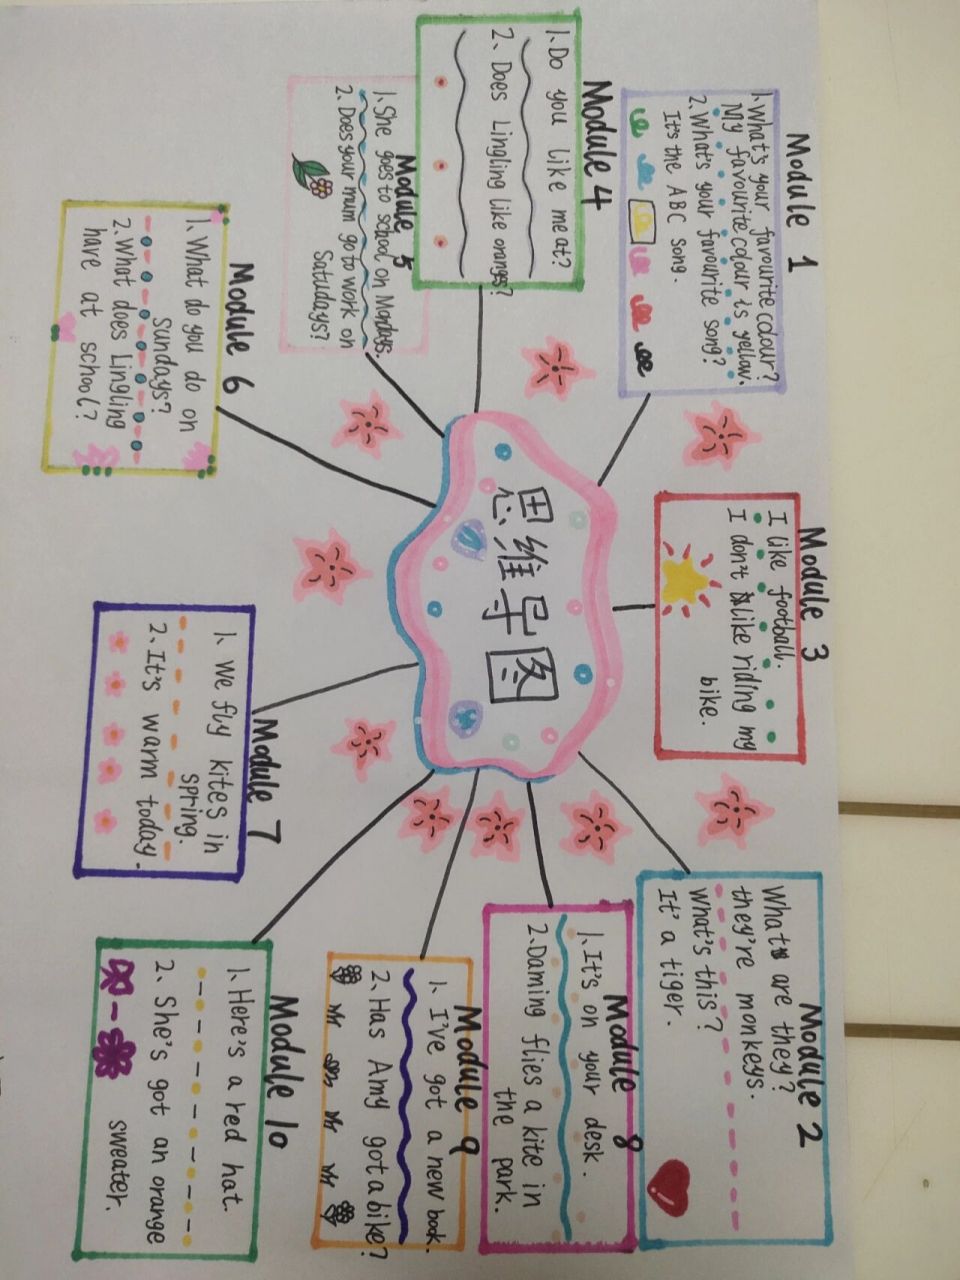 思维导图
Module 1
1.What's your favourite colour?
My favourite colour is yellow.
2.What's your favourite song?
It's the ABC song.
Module 2
What are they?
they're monkeys.
What's this?
It' a tiger.
Module 3
I like football.
I don't like riding my
bike.
Module 4
1.Do you like meat?
2.Does Lingling like oranges?
Module 5
1.She goes to school on Mondays.
2.Does your mum go to work on
Satudays?
Module 6
1.What do you do on
Sundays?
2.What does Lingling
have at school?
Module 7
1.We fly kites in
spring.
2.It's warm today.
Module 8
1.It's on your desk.
2.Daming flies a kite in
the park.
Module 9
1.I've got a new book.
2.Has Amy got a bike?
Module 10
1.Here's a red hat.
2.She's got an orange
sweater.